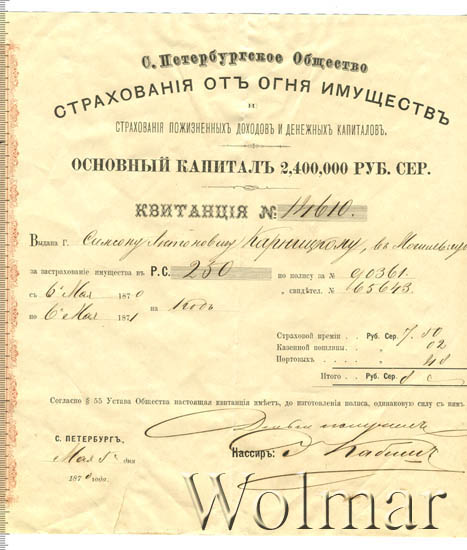 С. Петербургское Общество
СТРАХОВАНІЯ ОТЪ ОГНЯ ИМУЩЕСТВЪ
и
СТРАХОВАНІЯ ПОЖИЗНЕННЫХЪ ДОХОДОВЪ И ДЕНЕЖНЫХЪ КАПИТАЛОВЪ.
ОСНОВНЫЙ КАПИТАЛЪ 2,400,000 РУБ. СЕР.
КВИТАНЦІЯ № 14610.
Выдана Г. Антоновичу Карницкому, въ
за застрахованіе имущества въ Р.С. 250 по полису за № 90361.
съ 6 Мая 1870 на годъ „ свидѣтел. № 65643.
по 6 Мая 1871
Страховой преміи . Руб. Сер. 7. 50
Казенной пошлины . „ 02
Портовыхъ . . . „ 48
Итого . Руб. Сер. 8
Согласно § 55 Устава Общества настоящая квитанція имѣетъ, до изготовленія полиса, одинаковую силу съ нимъ.
Деньги получилъ
С. ПЕТЕРБУРГЪ, Кассиръ:
Мая 5 дня
1870 года.
Wolmar